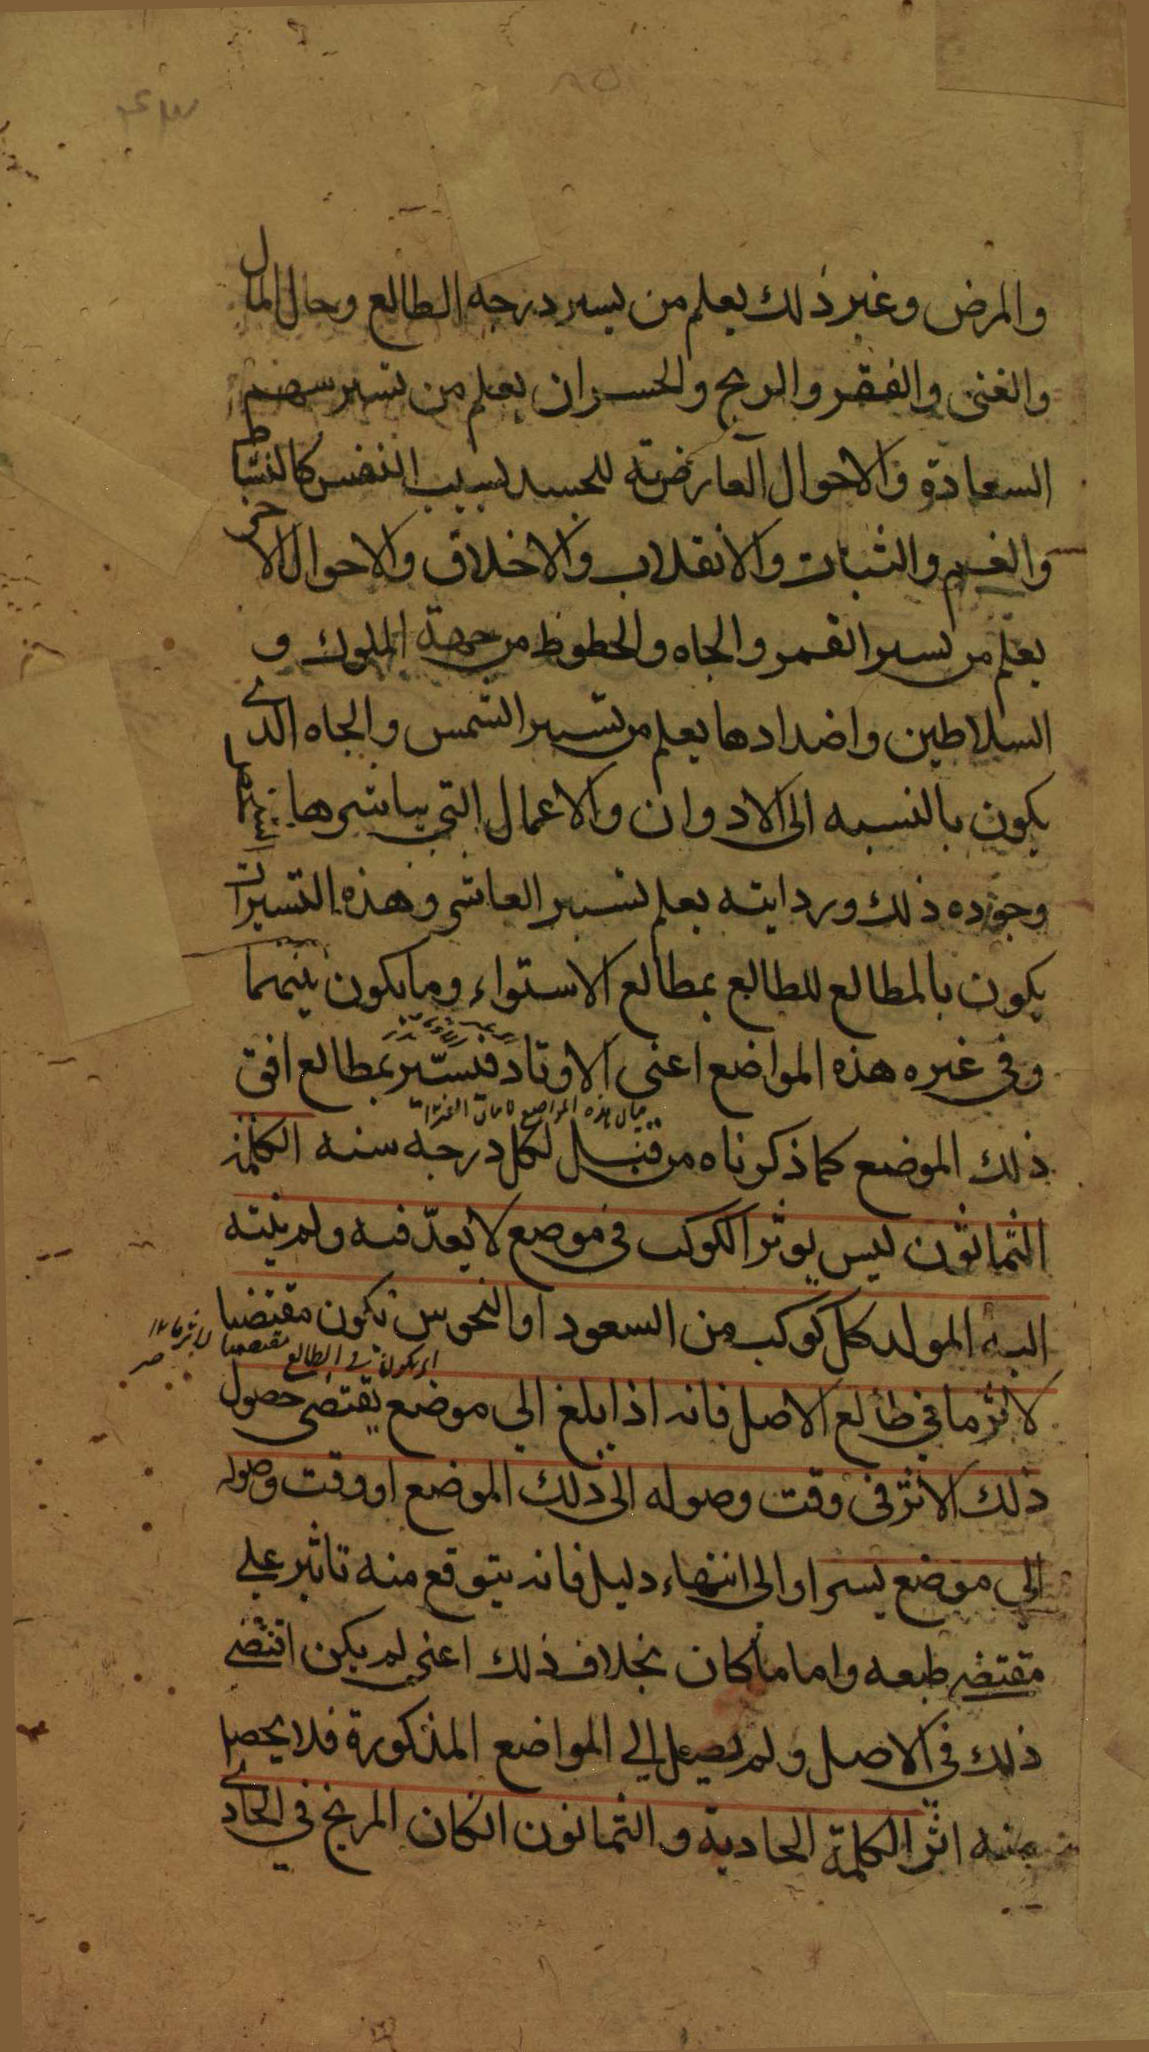 والمرض وغير ذلك يعلم من تسير درجه الطالع وحال المال
والغنى والفقر والربح والخسران يعلم من تسير سهم
السعادة والاحوال العارضة للجسد بسبب النفس كالنشاط
والغم والثبات والانقلاب والاخلاق والاحوال الاخر
يعلم من تسير القمر والجاه والحظوظ من جهة الملوك و
السلاطين واضدادها يعلم من تسير الشمس والجاه الذى
يكون بالنسبه الى الاد وان والاعمال التي يباشرها
وجوده ذلك ورداينه يعلم تسير العاشر وهذه التسيرات
يكون بالمطالع للطالع بمطالع الاستواء وما يكون بينهما
وفى غيره هذه المواضع اعنى الاوتاد فتسير بمطالع افق
ذلك الموضع كما ذكرناه من قبل لكل درجه سنه الكلمة
الثمانون ليس يوثر الكوكب فى موضع لا يعد فيه ولم ينته
اليه المولد كل كوكب من السعود او النحوس يكون مقتضيا
اى يكون فى الطالع مقتضيا
لاثر ما في طالع الاصل فانه اذا بلغ الى موضع يقتضى حصول
ذلك الاثر فى وقت وصوله الى ذلك الموضع او وقت وصوله
الى موضع يسير او الى انتهاء دليل فانه يتوقع منه تاثير على
مقتضى طبعه واما ما كان بخلاف ذلك اعنى لم يكن اقتضى
ذلك في الاصل ولم يصل الي المواضع المذكورة فلا يحصل
منه اثر الكلمة الحادية والثمانون ان كان المريخ في الحادى